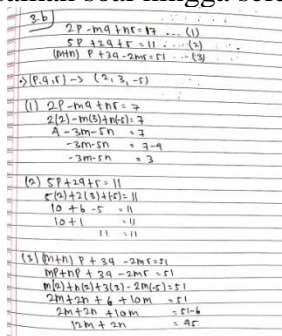 3.b
2p - mq + nr = 17 ... (1)
5p + 2q + r = 11 ... (2)
(m+n) p + 3q - 2mr = 51 ... (3)
(p,q,r) → (2,3,-5)
(1) 2p - mq + nr = 7
2(2) - m(3) + n(-5) = 7
4 - 3m - 5n = 7
-3m - 5n = 7-4
-3m - 5n = 3
(2) 5p + 2q + r = 11
5(2) + 2(3) + (-5) = 11
10 + 6 - 5 = 11
10 + 1 = 11
11 = 11
(3) (m+n) p + 3q - 2mr = 51
mp + np + 3q - 2mr = 51
m(2) + n(2) + 3(3) - 2m(-5) = 51
2m + 2n + 6 + 10m = 51
2m + 2n + 10m = 51-6
12m + 2n = 45